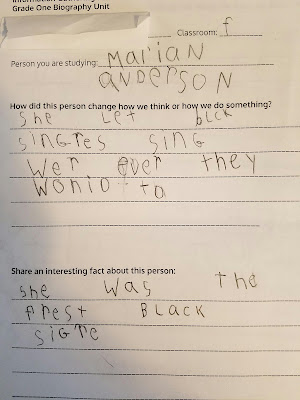 Grade One Biography Unit
Classroom: f
Person you are studying: Marian
anderson
How did this person change how we think or how we do something?
She Let blck
singres sing
wer ever they
wonid to
Share an interesting fact about this person:
she was The
frest BLacK
sigre